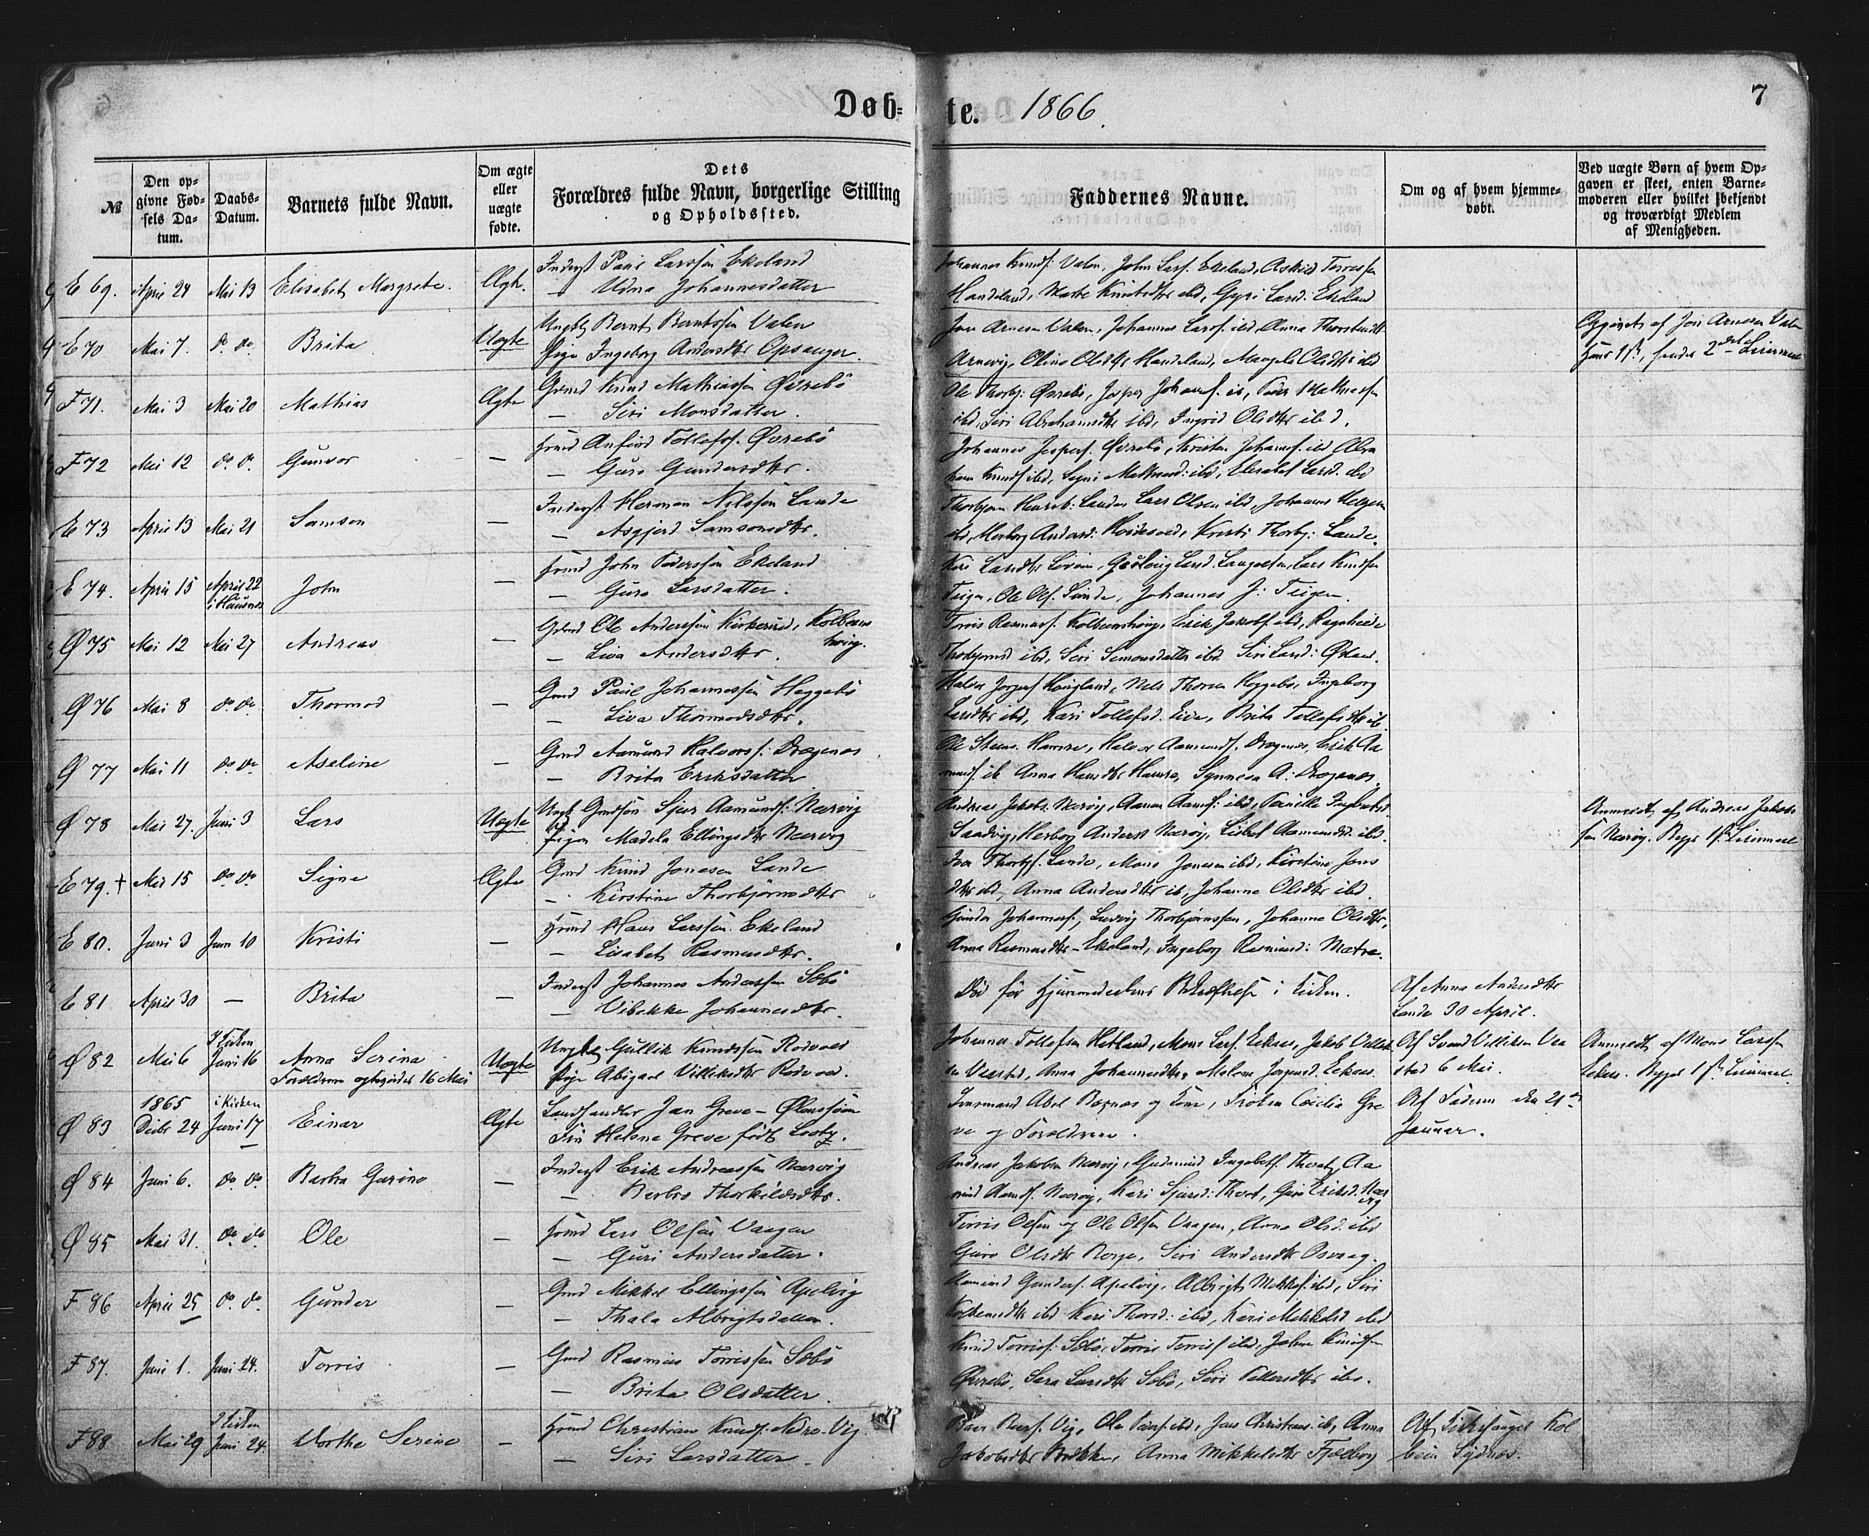 Døb-te. 1866.
7
№
Den opgivne Fødsels Datum.
Daabs-Datum.
Barnets fulde Navn.
Om ægte eller uægte fødte.
Dets Forældres fulde Navn, borgerlige Stilling og Opholdssted.
Faddernes Navne.
Om og af hvem hjemmedøbt.
Ved uægte Børn af hvem Opgaven er skeet, enten Barnemoderen eller hvilket bekjendt og troværdigt Medlem af Menigheden.
E 69. April 24 Mai 13 Elisabeth Margrete. Ægte. Inderst Paul Larssøn Ekeland
— Udna Johannesdatter
Johannes Knuds: Valen, John Lars: Ekeland, Astrid Torresen
Handeland, Marte Knutsdtr ibd, Gyri Larsd: Ekeland
E 70 Mai 7. do do Brita Uægte Ungkl Bernt Berntssøn Valen
Pige Ingeborg Andersdtr Opsanger.
Jon Arnesen Valen, Johannes Larss. ibd, Anna Thorsteinsdtr
Arnevig, Oline Olsdtr Handeland, Mangela Olsdtr ibd
Opgivet af Jon Arnesen Valen
Hans 1ste, hendes 2det Leiermaal
F 71. Mai 3 Mai 20 Mathias Ægte Grmd Knud Mathiassøn Øvrebø
— Siri Monsdatter.
Ole Thorbj: Øvrebø, Jesper Johannes. ib, Peder Mathiesen
ibd, Siri Abrahamsdtr ibd, Ingrid Olsdtr ibd.
F 72 Mai 12 do do Gunvor — Hmd Anfind Tollefs. Øvrebø
— Guro Gundersdtr.
Johannes Jespers. Øvrebø, Kristen Johanns. ibd Abra
ham Knuds ibd, Signi Mathiasd: ibd, Elisabet Larsd. ibd
E 73 April 13 Mai 21 Samson — Inderst Herman Nilssøn Lande
— Asgjerd Samsonsdtr.
Thorbjørn Henrik: Lande, Lars Olsen ibd, Johannes Helgesen
ibd, Herborg Andersd: Hoidesved, Kristi Thorbj: Lande.
E 74. April 15 April 22 i Huusnes John — Hmd John Pederssøn Ekeland
— Guro Larsdatter.
Kari Larsdtr Eivin, Gudleig Larsd. Langeland, Lars Knudsen
Teigen, Ole Ols. Lunde, Johannes J: Teigen.
Ø 75 Mai 12 Mai 27 Andreas — Grbmd Ole Anderssøn Kirkesæd, Kolbens
— Liva Andersdtr. høig.
Torris Rasmuss. Kolbenshøig, Erik Jakobs. ibd, Ragnhilde
Thorbjørnsd ibd, Siri Semonsdatter ibd. Siri Larsd: Øvland.
Ø 76 Mai 8 do do Thormod — Gmd Paul Johannessøn Heggebø
— Liva Thormodsdtr.
Halvor Jørgens Hougland, Nels Thorsen Heggebø, Ingeborg
Larsdtr ibd, Kari Tollefsd. Eide, Brita Tollefsdtr ib
Ø 77 Mai 11 do do Aseline — Gmd Aamund Halvors: Dragenes
— Brita Eriksdatter
Ole Steens. Hamre, Halvor Aamunds. Dragenes, Erik Aa
munds. ib Anna Hansdtr Hamre, Synneva A: Dragenes
Ø 78 Mai 27. Juni 3 Lars Uægte Ungk Gmdsøn Sjur Aamunds: Nærvig
Pigen Madela Ellingsdtr Nærvig
Andreas Jakobs Nærvig, Aamun Aams: ibd, Pernille Ingbretsd
Sandvig, Herborg Andersd Nærvig, Lisbet Aamundsd: ibd
Anmeldt af Andreas Jakob
sen Nærvig. Begges 1ste Leiermaal
E 79. + Mai 15 do do Signe Ægte Gmd Knud Jonesen Lande
— Kirstine Thorbjørnsdtr
Iver Thorbjs. Lande, Mons Jonesen ibd, Kirstine Jons
dtr ibd, Anna Andersdtr ib, Johanne Olsdtr ibd
E 80. Juni 3 Juni 10 Kristi — Hmd Hans Larssøn Ekeland
— Lisabet Rasmusdtr.
Gunder Johanness, Ludvig Thorbjørnssen, Johanne Olsdtr,
Anna Rasmusdtr - Ekeland, Ingeborg Rasmusd: Matre
E 81 April 30 — Brita — Inderst Johannes Anderssøn Sæbø
— Vibekke Johannesdtr.
Død før Hjemmedaabens Bekræftelse i Kirken.
Af Anna Andersdtr
Lande 30 April.
Ø 82 Mai 6 I Kirken Juni 16 Anna Serina Uægte Ungkl Gullik Knudssøn Rødvæd
Forældrene ægteviedes 16 Mai
Pige Abigael Villiksdtr Rødvæd.
Johannes Tollefsen Hetland, Mons Lars. Eeknes, Jakob Villiks
en Veastad, Anna Johannesdtr, Malene Jørgensd. Eeknes.
Af Svend Villiksen Vea
stad 6 Mai.
Anmeldt af Mons Larssen
Eeknes. Begges 1ste Leiermaal.
Ø 83 1865 Decbr 24 i Kirken Juni 17 Einar Ægte Landhandler Jan Greve - Ølenssjøen
Fru Helene Greve født Lasby.
Lensmand Abel Bognøs og Kone, Frøken Cecilia Gre
ve og Forældrene.
Af Faderen den 21de
Januar.
Ø 84 Juni 6. do do Barbra Gurine — Inderst Erik Andreassøn Nærvig
— Barbro Thorkildsdtr.
Andreas Jakobsen Nærvig, Gudmund Ingebrets. Thvet, Aa
mund Aams: Nærvig, Kari Sjursd: Thvet, Guri Eriksd. Nær
vig
Ø 85 Mai 31. do do Ole — Hmd Lars Olssøn Vaagen
— Guri Andersdatter.
Torris Olsen og Ole Olsen Vaagen, Anna Olsd. ibd
Guro Olsdtr Borge, Siri Andersdtr Osvaag.
F 86 April 25 do do Gunder — Gmd Mikkel Ellingssøn Apelvig
— Thala Albrigtsdatter.
Aamund Gunders. Apelvig, Albrigt Mikkels. ibd, Siri
Kolbensdtr ibd Kari Thorsd: ibd, Kari Mikkelsd ibd
F 87. Juni 1. Juni 24. Torris — Gmd Rasmus Torrissøn Sæbø
— Brita Olsdatter
Knud Torriss: Sæbø, Torris Torriss ibd, Jakob Knudsen
Øvrebø, Sara Larsdtr Sæbø, Siri Pedersdtr ibd.
F 88 Mai 29 I Kirken Juni 24. Dorthe Serine — Hmd Christian Knuds. Nedre-Vig
— Siri Larsdatter.
Baar Baars. Vig, Ole Lars. ibd, Jens Christians. ib, Anna
Jakobsdtr Bække, Anna Mikkelsdtr Fjelberg
Af Kirkesanger Kol
bein Sydnes.